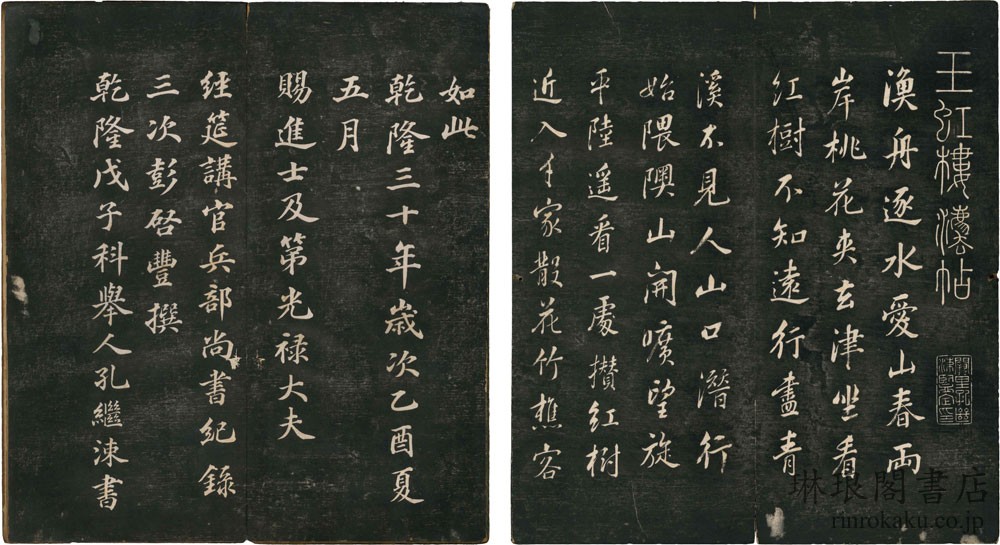 玉虹樓灋帖
漁舟逐水愛山春兩
岸桃花夾去津坐看
紅樹不知遠行盡青
溪不見人山口潛行
始隈隩山開曠望旋
平陸遥看一處攢紅樹
近入千家散花竹樵客
如此
乾隆三十年歲次乙酉夏
五月
賜進士及第光禄大夫
經筵講官兵部尚書紀錄
三次彭啓豐撰
乾隆戊子科舉人孔繼涑書
琳琅閣書店
rinrokaku.co.jp